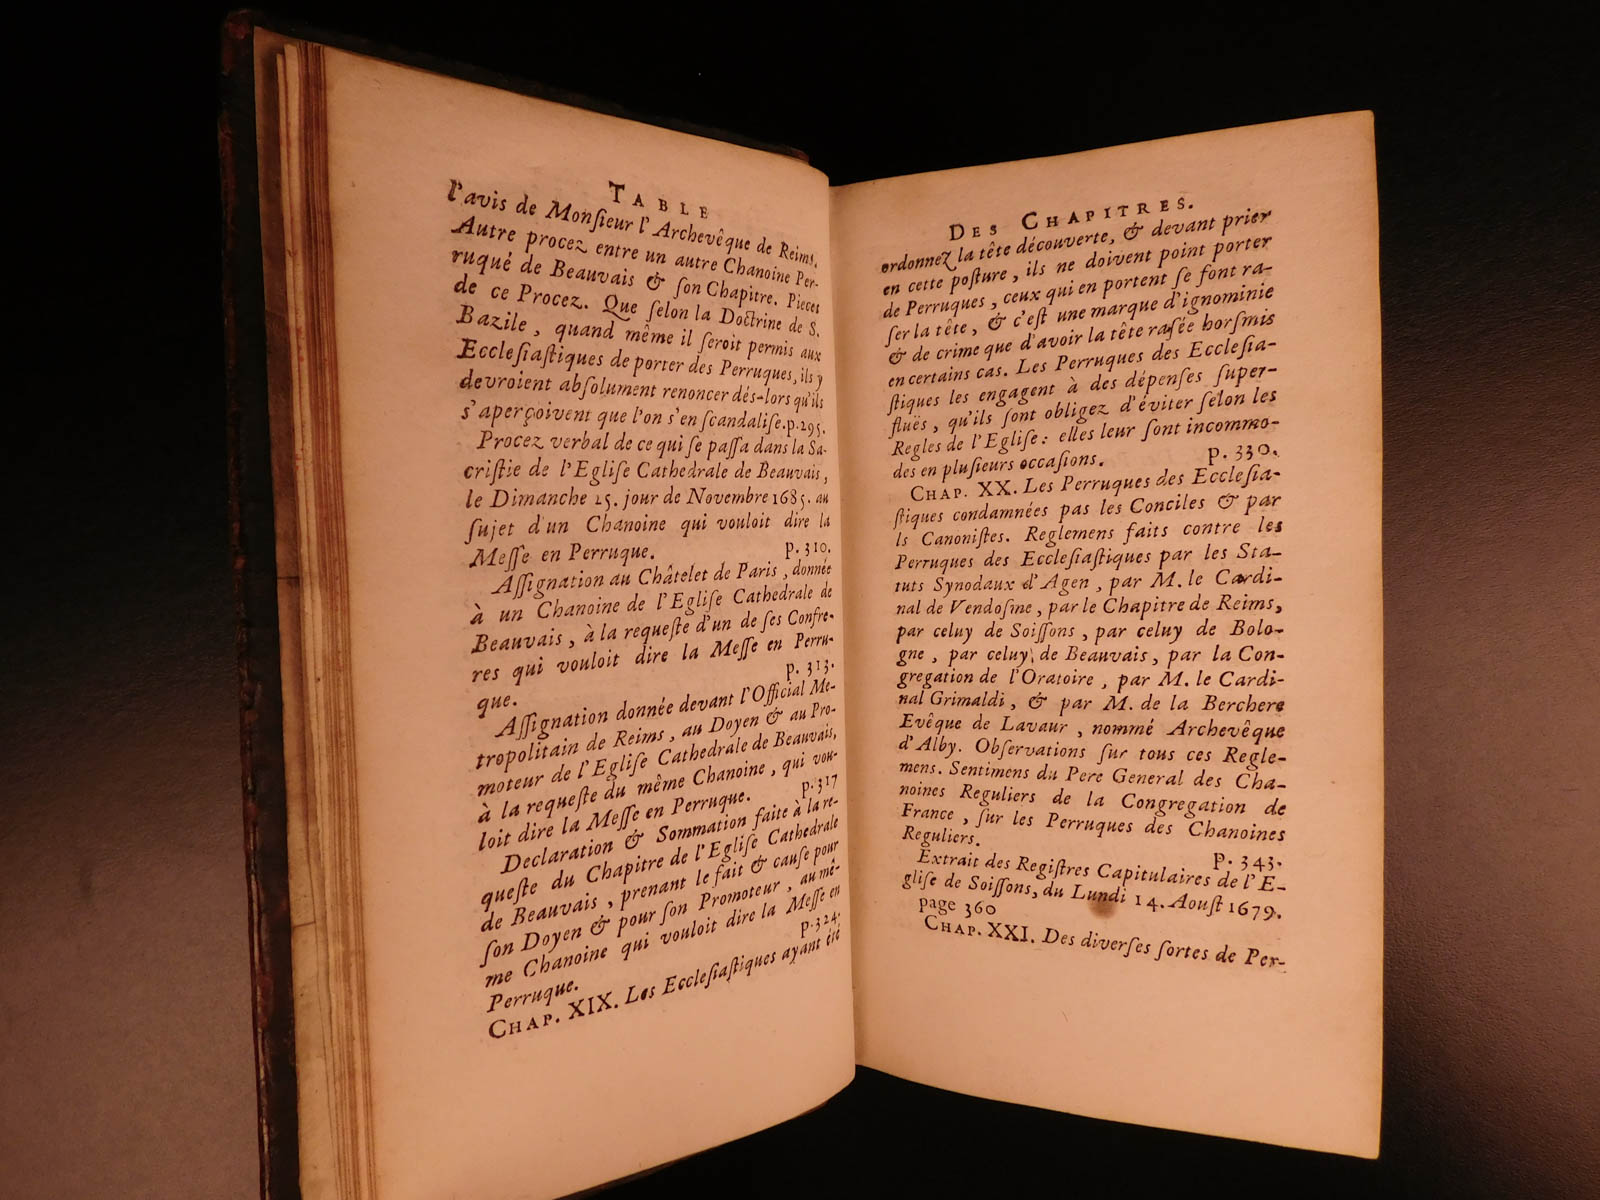 TABLE
l'avis de Monſieur l'Archevêque de Reims.
Autre procez entre un autre Chanoine Per-
ruqué de Beauvais & ſon Chapitre. Pieces
de ce Procez. Que ſelon la Doctrine de S.
Bazile, quand même il ſeroit permis aux
Eccleſiaſtiques de porter des Perruques, ils y
devroient abſolument renoncer dés-lors qu'ils
s'aperçoivent que l'on s'en ſcandaliſe. p. 295.
Procez verbal de ce qui ſe paſſa dans la Sa-
criſtie de l'Egliſe Cathedrale de Beauvais,
le Dimanche 25. jour de Novembre 1685. au
ſujet d'un Chanoine qui vouloit dire la
Meſſe en Perruque. p. 310.
Aſſignation au Châtelet de Paris, donnée
à un Chanoine de l'Egliſe Cathedrale de
Beauvais, à la requeſte d'un de ſes Confre-
res qui vouloit dire la Meſſe en Perru-
que. p. 313.
Aſſignation donnée devant l'Official Me-
tropolitain de Reims, au Doyen & au Pro-
moteur de l'Egliſe Cathedrale de Beauvais,
à la requeſte du même Chanoine, qui vou-
loit dire la Meſſe en Perruque. p. 317
Declaration & Sommation faite à la re-
queſte du Chapitre de l'Egliſe Cathedrale
de Beauvais, prenant le fait & cauſe pour
ſon Doyen & pour ſon Promoteur, au mê-
me Chanoine qui vouloit dire la Meſſe en
Perruque. p. 324.
CHAP. XIX. Les Eccleſiaſtiques ayant été
DES CHAPITRES.
ordonnez la tête découverte, & devant prier
en cette poſture, ils ne doivent point porter
de Perruques, ceux qui en portent ſe font ra-
ſer la tête, & c'eſt une marque d'ignominie
& de crime que d'avoir la tête raſée horſmis
en certains cas. Les Perruques des Eccleſia-
ſtiques les engagent à des dépenſes ſuper-
fluës, qu'ils ſont obligez d'éviter ſelon les
Regles de l'Egliſe: elles leur ſont incommo-
des en pluſieurs occaſions. p. 330.
CHAP. XX. Les Perruques des Eccleſia-
ſtiques condamnées pas les Conciles & par
ls Canoniſtes. Reglemens faits contre les
Perruques des Eccleſiaſtiques par les Sta-
tuts Synodaux d'Agen, par M. le Cardi-
nal de Vendoſme, par le Chapitre de Reims,
par celuy de Soiſſons, par celuy de Bolo-
gne, par celuy de Beauvais, par la Con-
gregation de l'Oratoire, par M. le Cardi-
nal Grimaldi, & par M. de la Berchere
Evêque de Lavaur, nommé Archevêque
d'Alby. Obſervations ſur tous ces Regle-
mens. Sentimens du Pere General des Cha-
noines Reguliers de la Congregation de
France, ſur les Perruques des Chanoines
Reguliers. p. 343.
Extrait des Regiſtres Capitulaires de l'E-
gliſe de Soiſſons, du Lundi 14. Aouſt 1679.
page 360
CHAP. XXI. Des diverſes ſortes de Per-